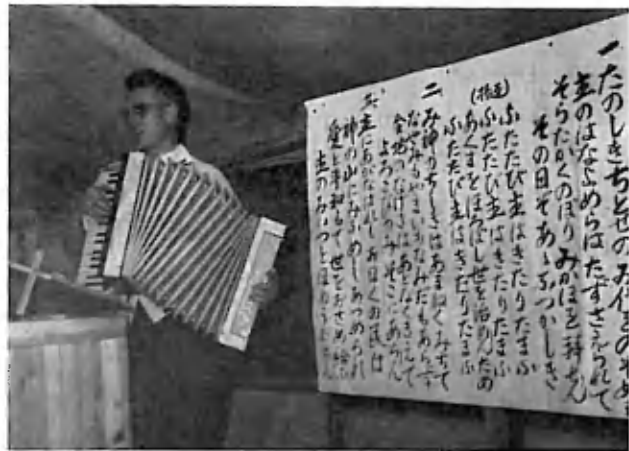 一 たのしきちとせのみ代をのぞめ
主のはなよめらはたずさえられて
そらたかくのぼり みかほを拝せん
その日ぞあゝなつかしき
(折返)
ふたたび主はきたりたまふ
ふたたび主はきたりたまふ
あくまをほろぼし世を治めんため
ふたたび主はきたりたまふ
二 み神のちしきはあまねくみちて
なやみもやまいもなみだもあらず
全地のなげきはあとなくきえて
よろこびのみぞそこにあらん
三 主にあがなはれしおほくの民は
神の山に めしあつめられ
愛と平和もて世をおさめ給ふ
主のみいつをほめうたはん